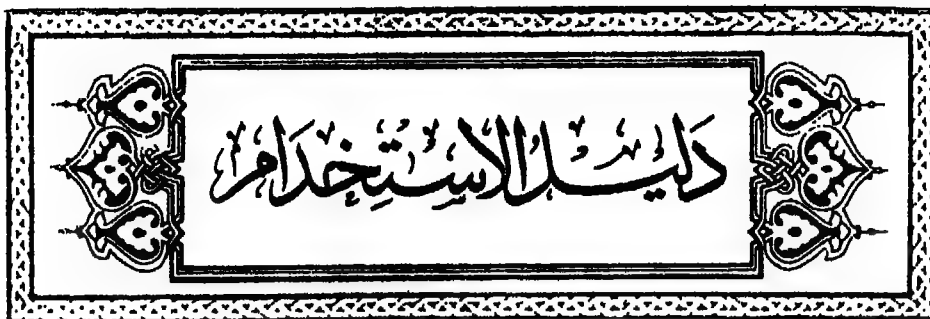 دَلِيل الاسْتِخدَام